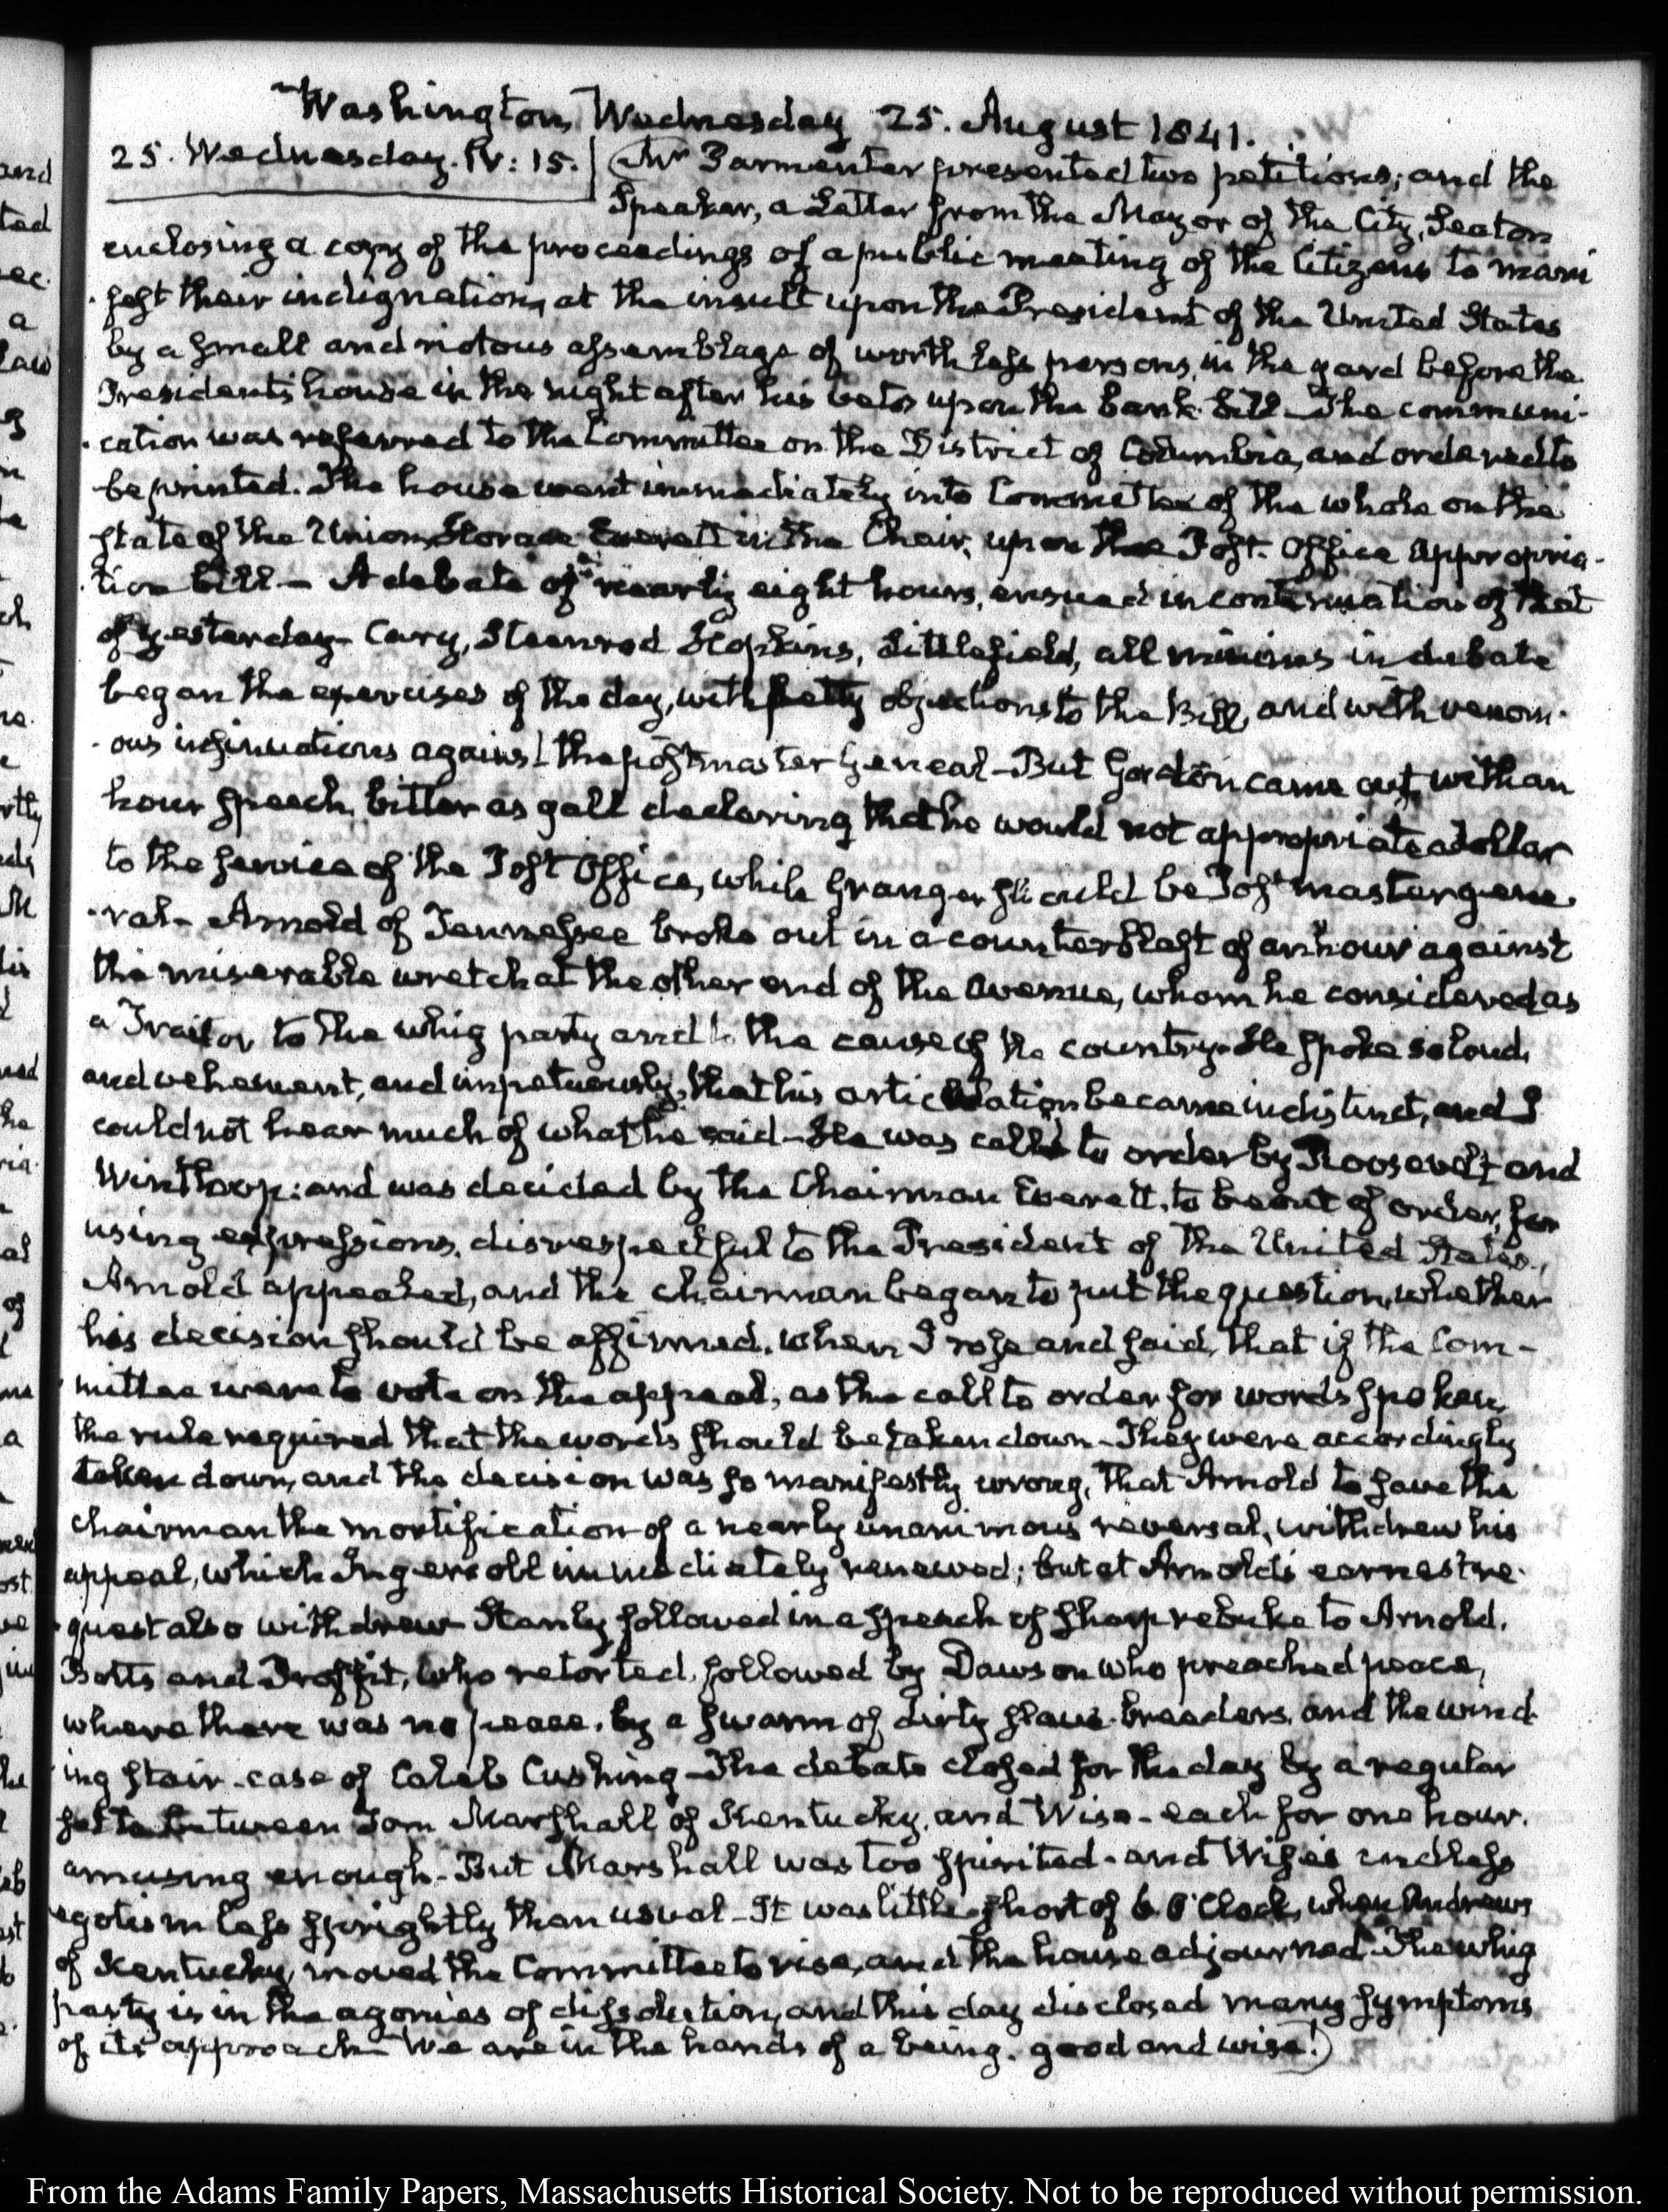 Washington, Wednesday 25. August 1841.
25. Wednesday. IV: 15. Mr Parmenter presented two petitions; and the
Speaker, a Letter from the Mayor of the City, Seaton
enclosing a copy of the proceedings of a public meeting of the Citizens to mani
fest their indignation, at the insult upon the President of the United States
by a small and riotous assemblage of worthless persons, in the yard before the
President's house in the night after his veto upon the bank bill — The communi-
cation was referred to the Committee on the District of Columbia, and ordered to
be printed. The house went immediately into Committee of the whole on the
state of the Union, Horace Everett in the Chair, upon the Post Office Appropria-
tion bill — A debate of nearly eight hours, ensued in continuation of that
of yesterday — Cary, Steenrod Hopkins, Littlefield, all minims in debate
began the exercises of the day, with petty objections to the Bill, and with venom-
ous insinuations against the postmaster General — But Gordon came out with an
hour speech, bitter as gall declaring that he would not appropriate a dollar
to the service of the Post Office, while Granger should be Post master gene-
ral — Arnold of Tennessee broke out in a counterblast of an hour against
the miserable wretch at the other end of the Avenue, whom he considered as
a Traitor to the whig party and to the cause of the country — He spoke so loud,
and vehement, and impetuously, that his articulation became indistinct, and I
could not hear much of what he said — He was called to order by Roosevelt and
Winthrop: and was decided by the Chairman Everett, to be out of order, for
using expressions, disrespectful to the President of the United States,
Arnold appealed, and the chairman began to put the question, whether
his decision should be affirmed, when I rose and said, that if the Com-
mittee were to vote on the appeal, as the call to order for words spoken,
the rule required that the words should be taken down — They were accordingly
taken down, and the decision was so manifestly wrong, that Arnold to save the
chairman the mortification of a nearly unanimous reversal, withdrew his
appeal, which Ingersoll immediately renewed; but at Arnold's earnest re-
quest also withdrew — Stanly followed in a speech of sharp rebuke to Arnold,
Botts and Proffit, who retorted, followed by Dawson who preached peace,
where there was no peace, by a swarm of dirty slave-breeders, and the wind-
ing stair-case of Caleb Cushing — The debate closed for the day by a regular
set to between Tom Marshall of Kentucky, and Wise — each for one hour.
amusing enough — But Marshall was too spirited — and Wise's endless
egotism less sprightly than usual — It was little short of 6. O'Clock, when Andrews
of Kentucky, moved the Committee to rise, and the house adjourned — The whig
party is in the agonies of dissolution, and this day disclosed many symptoms
of its approach — We are in the hands of a being, good and wise.)
From the Adams Family Papers, Massachusetts Historical Society. Not to be reproduced without permission.